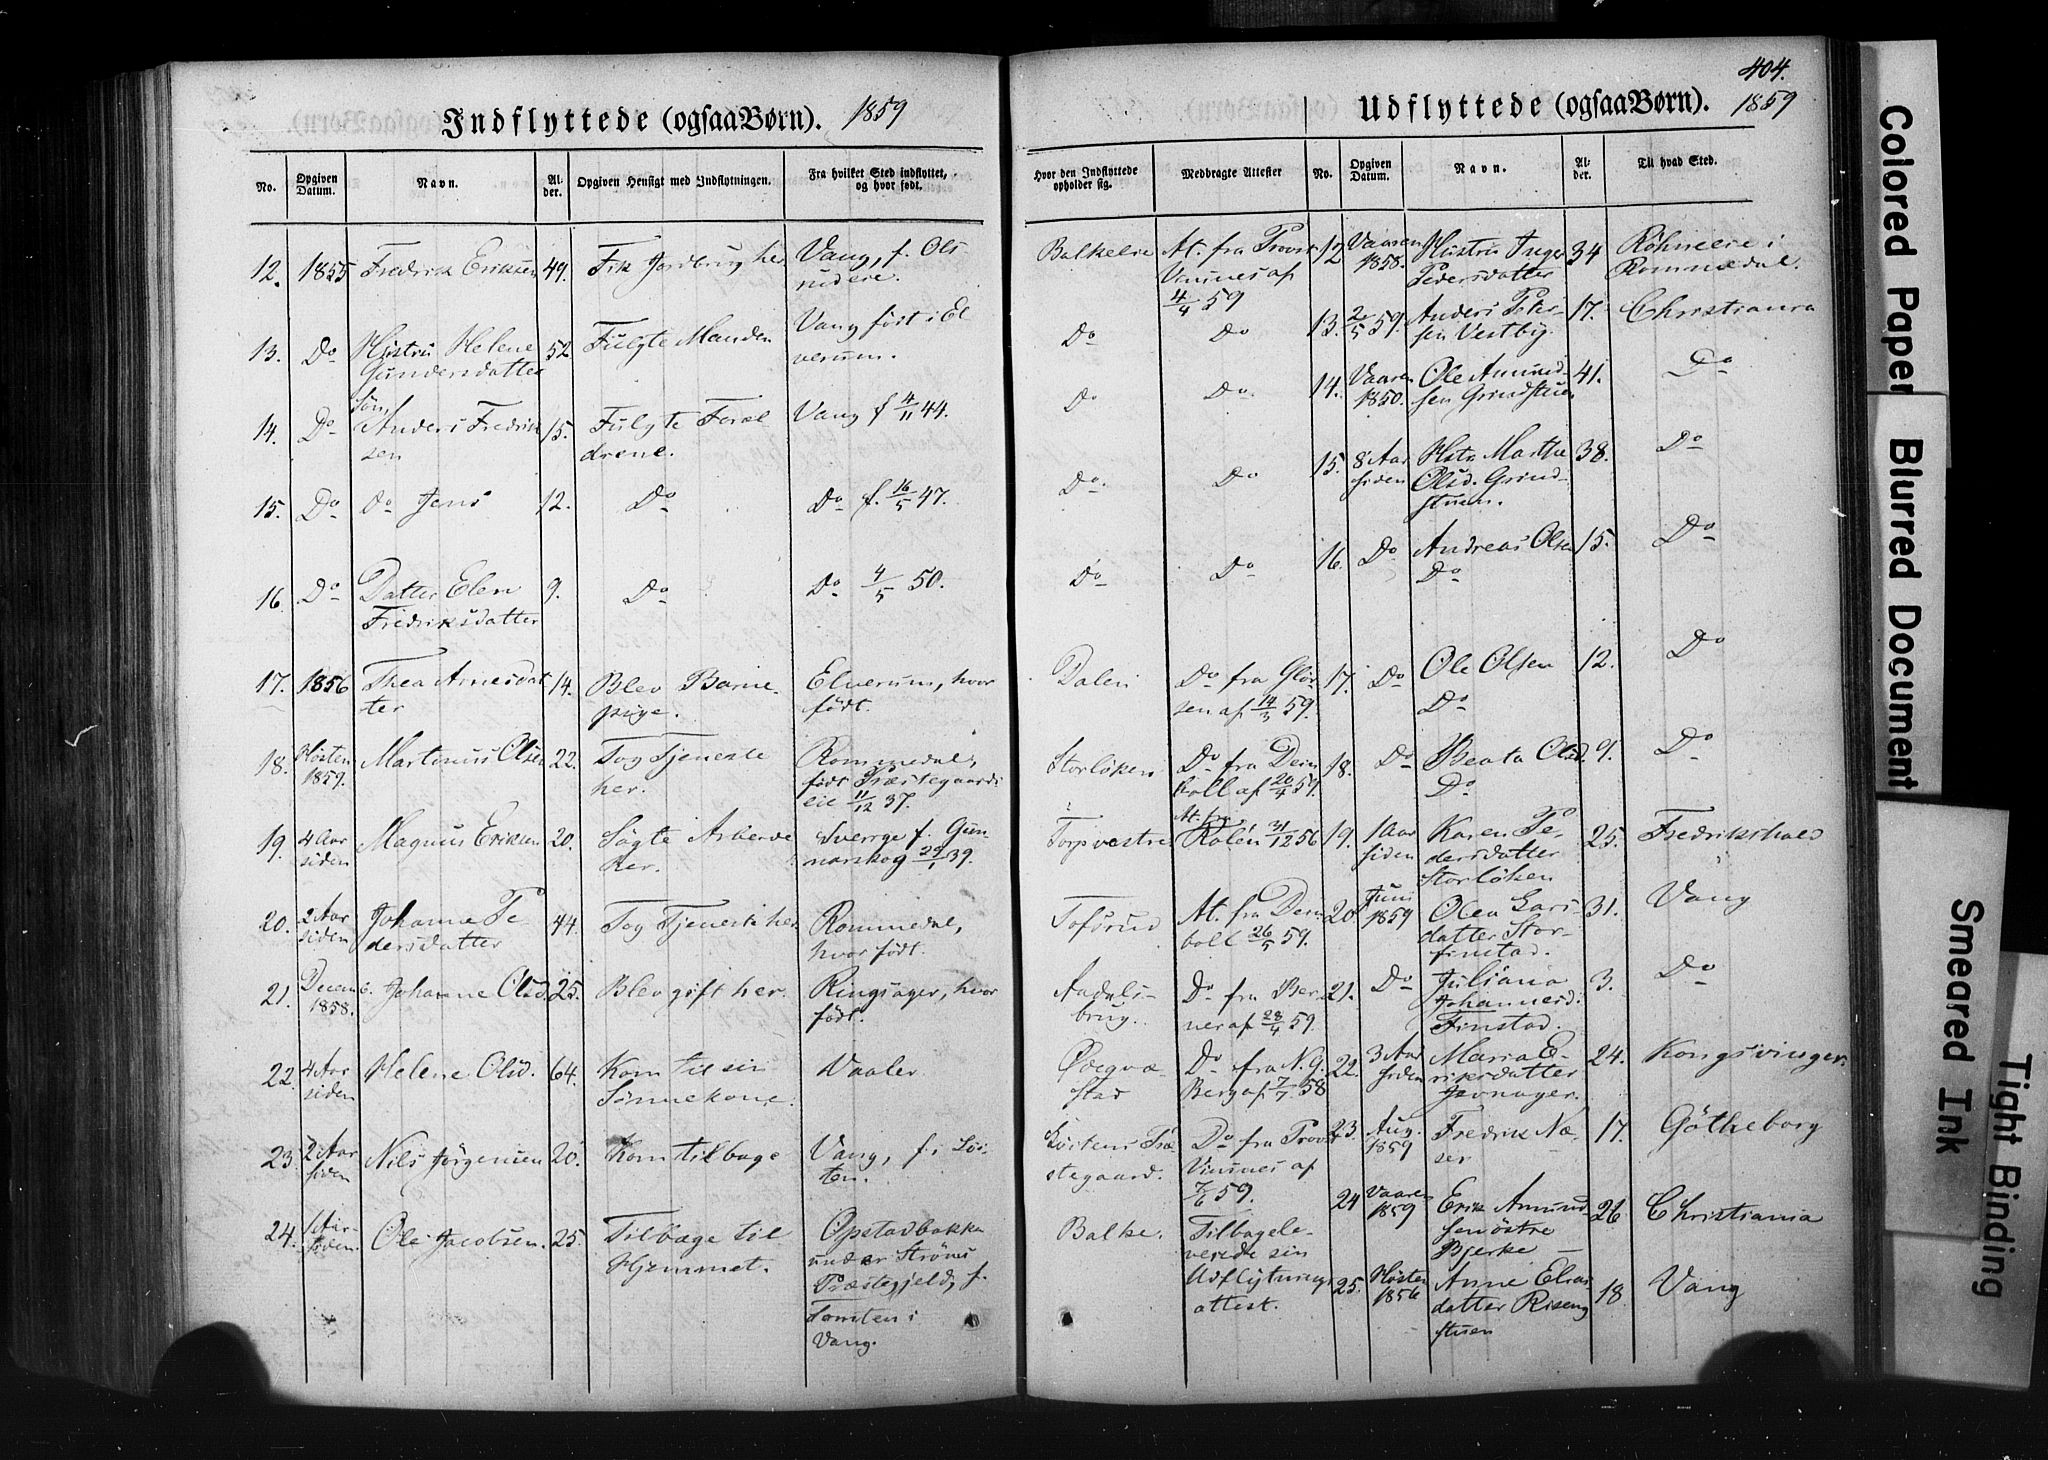 404.
Indflyttede (ogsaa Børn). 1859
Udflyttede (ogsaa Børn). 1859
No. | Opgiven Datum. | Navn. | Alder. | Opgiven Hensigt med Indflytningen. | Fra hvilket Sted indflyttet, og hvor født. | Hvor den Indflyttede opholder sig. | Medbragte Attester
12. | 1855 | Fredrik Eriksen | 49. | Fik Jordbrug her | Vang, f. Ols | Balkelie | At. fra Provst Vinsnes af 4/4 59
13. | Do | Hustru Helene Gundersdatter | 52 | Fulgte Manden | Vang født i Elverum. | Do | Do
14. | Do | Søn Anders Fredriksen | 15. | Fulgte Forældrene. | Vang f 4/11 44. | Do | Do.
15. | Do | do Jens | 12. | Do | Do f. 16/5 47. | Do. | Do
16. | Do | Datter Elen Fredriksdatter | 9. | Do | Do 4/5 50. | Do | Do
17. | 1856 | Thea Arnesdatter | 14. | Blev Barnepige. | Elverum, hvor født. | Dalen | Do fra Glørsen af 14/3 59.
18. | Høsten 1859. | Martinus Olsen | 22. | Tog Tjeneste her. | Rommedal, født Præstegaardseie 11/12 37. | Storløken | Do fra Dernboll af 20/4 59.
19. | 4 Aar siden | Magnus Eriksen | 20. | Søgte Arbeide her. | Sverrge f. Gunnarskog 29/1 39. | Torp vestre | At. fra Rolén 31/12 56
20. | 2 Aar siden | Johanne Pedersdatter | 44. | Tog Tjeneste her | Rommedal, hvor født. | Tofsrud | At. fra Dernboll 26/5 59.
21. | Decemb. 1858. | Johanne Olsd. | 25. | Blev gift her. | Ringsager, hvor født. | Aadalsbrug. | Do fra Berner af 28/4 59.
22. | 4 Aar siden | Helene Olsd. | 64. | Kom til sin Sønnekone. | Vaaler | Ødegvæstad | Do fra N. G. Berg af 7/7 58
23. | 2 Aar siden | Nils Jørgensen | 20. | Kom tilbage | Vang, f. i Løiten. | Løitens Præstegaard. | Do fra Provst Vinsnes af 7/6 59.
24. | 1 Aar siden. | Ole Jacobsen. | 25. | Tilbage til Hjemmet. | Opstadbakke under Strøms Præstegjeld, f. Tomten i Vang. | Balke. | Tilbageleverede sin Udflytningsattest.
No. | Opgiven Datum. | Navn. | Alder. | Til hvad Sted.
12 | Vaaren 1858. | Hustru Inger Pedersdatter | 34 | Røhneeie i Rommedal.
13. | 20/5 59. | Anders Petersen Vestby. | 17. | Christiania
14. | Vaaren 1850. | Ole Amundsen Grindstuen | 41. | Do
15. | 8 Aar siden | Hstr Marthe Olsd. Grindstuen. | 38. | Do
16. | Do | Andreas Olsen Do | 15. | Do
17. | Do | Ole Olsen Do | 12. | Do
18. | Do | Beata Olsd. Do | 9. | Do
19. | 1 Aar siden | Karen Pedersdatter Storløken | 25. | Fredrikshald
20 | Juni 1859 | Olea Larsdatter Storfinstad. | 31. | Vang
21. | Do | Juliana Johannesd. Finstad. | 3. | Do
22. | 3 Aar siden | Maria Eriksdatter Jevnager. | 24. | Kongsvinger
23. | Aug. 1859 | Fredrik Næser | 17. | Gøtheborg
24 | Vaaren 1859 | Erik Amundsen østre Bjerke | 26 | Christiania
25. | Høsten 1856 | Anne Eliasdatter Risengstuen | 18 | Vang
Colored Paper
Blurred Document
Smeared Ink
Tight Binding